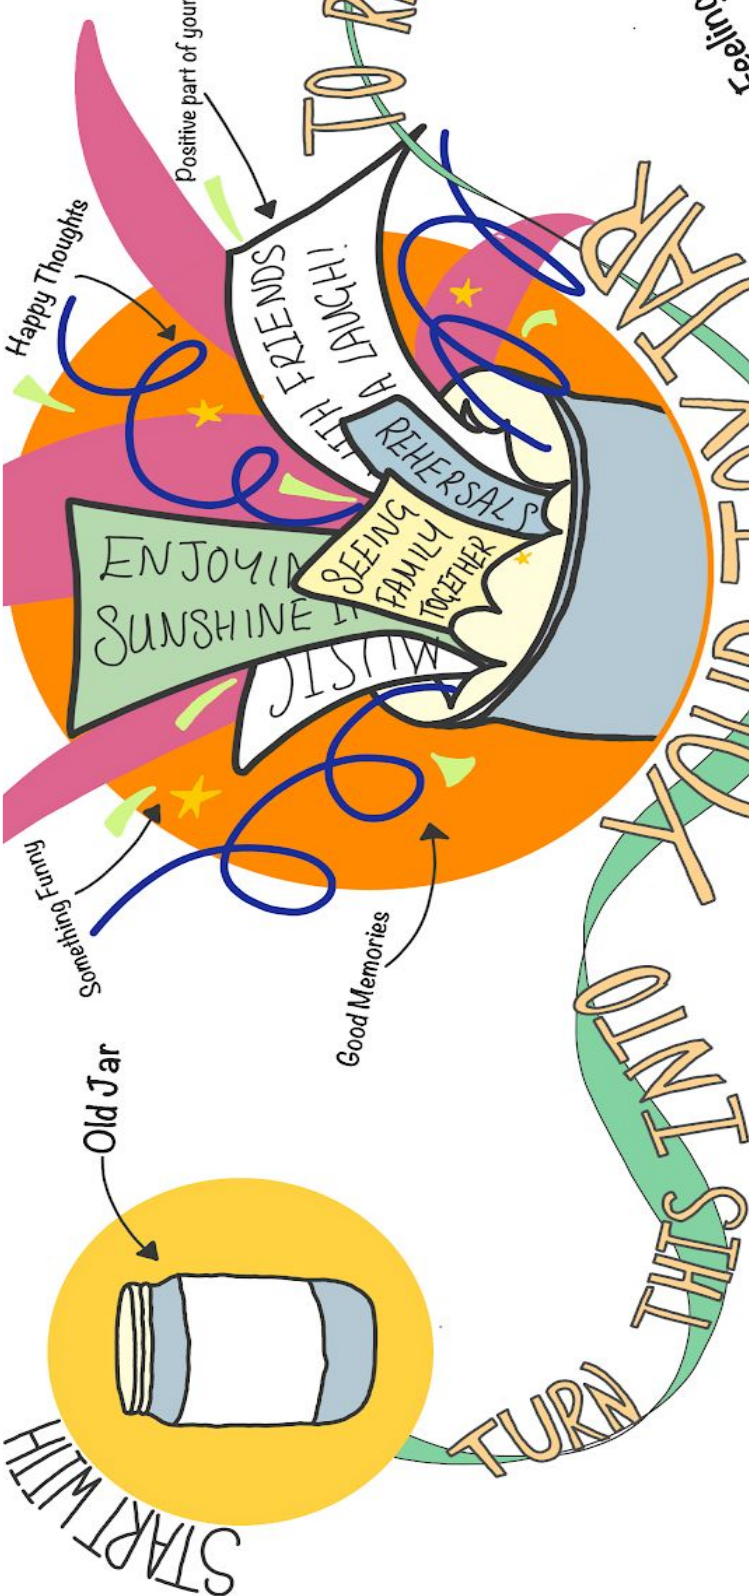 START WITH
Old Jar
TURN THIS INTO YOUR JOY JAR
Something Funny
Good Memories
Happy Thoughts
Positive part of your
MUSIC
ENJOYIN
SUNSHINE
SEEING
FAMILY
TOGETHER
REHERSALS
WITH FRIENDS
A LAUGH!
TO
Feeling